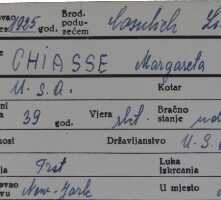 1925 god. Brod. podu- zećem Cosulich Li
CHIASSE Margareta
U.S.A. Kotar
39 god. Vjera rkt. Bračno stanje ud
nost Državljanstvo U.S.
Trst Luka Iskrcanja
ovao New-York U mjesto